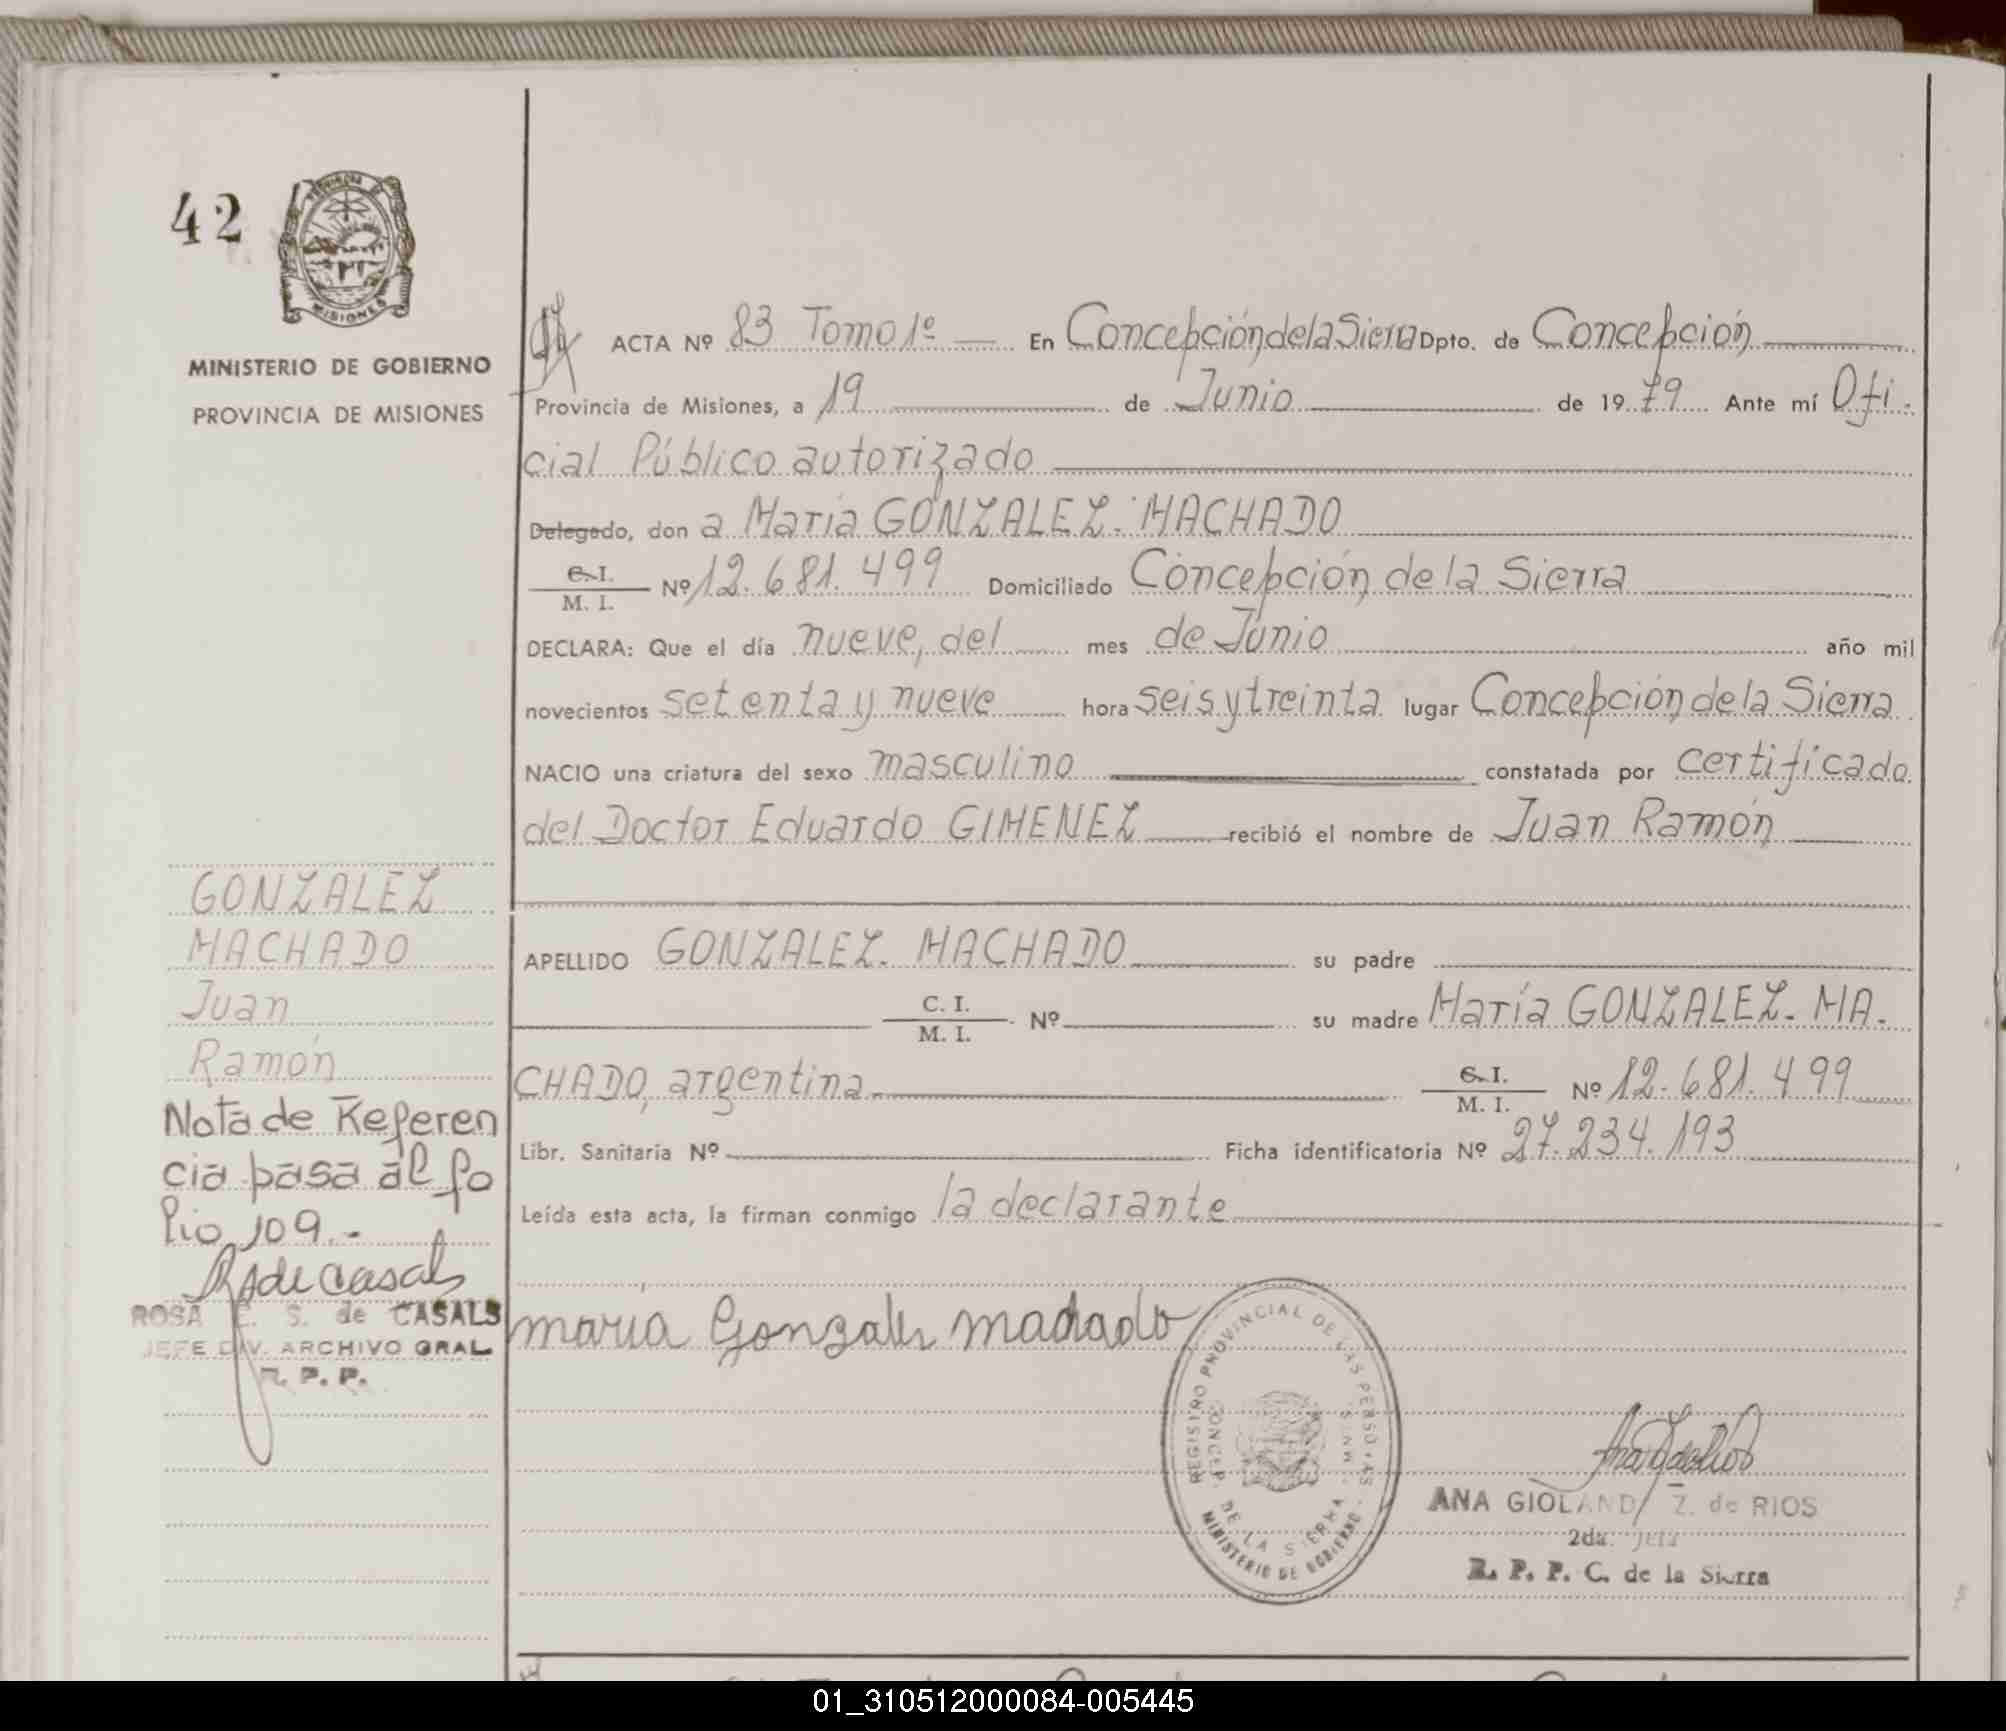 42
MISIONES
MINISTERIO DE GOBIERNO
PROVINCIA DE MISIONES
ACTA Nº 83 Tomo 1º En Concepción de la Sierra Dpto. de Concepción
Provincia de Misiones, a 19 de Junio de 1979 Ante mí Ofi.
cial Público autorizado
Delegado, don a María GONZALEZ. MACHADO
C.I.
M. I. Nº 12.681.499 Domiciliado Concepción de la Sierra
DECLARA: Que el día nueve, del mes de Junio año mil
novecientos setenta y nueve hora seis y treinta lugar Concepción de la Sierra
NACIO una criatura del sexo masculino constatada por certificado
del Doctor Eduardo GIMENEZ recibió el nombre de Juan Ramón
APELLIDO GONZALEZ. MACHADO su padre
C. I.
M. I. Nº su madre María GONZALEZ. MA.
CHADO, argentina C.I.
M. I. Nº 12.681.499
Libr. Sanitaria Nº Ficha identificatoria Nº 27.234.193
Leída esta acta, la firman conmigo la declarante
maria Gonzalez machado
REGISTRO PROVINCIAL DE LAS PERSONAS
CONCEP. DE LA SIERRA
MINISTERIO DE GOBIERNO
ANA GIOLANDA Z. de RIOS
2da. Jefa
R. P. P. C. de la Sierra
GONZALEZ
MACHADO
Juan
Ramón
Nota de Referen
cia pasa al fo
lio 109.-
R S de Casals
ROSA E. S. de CASALS
JEFE DIV. ARCHIVO GRAL.
R. P. P.
01_310512000084-005445